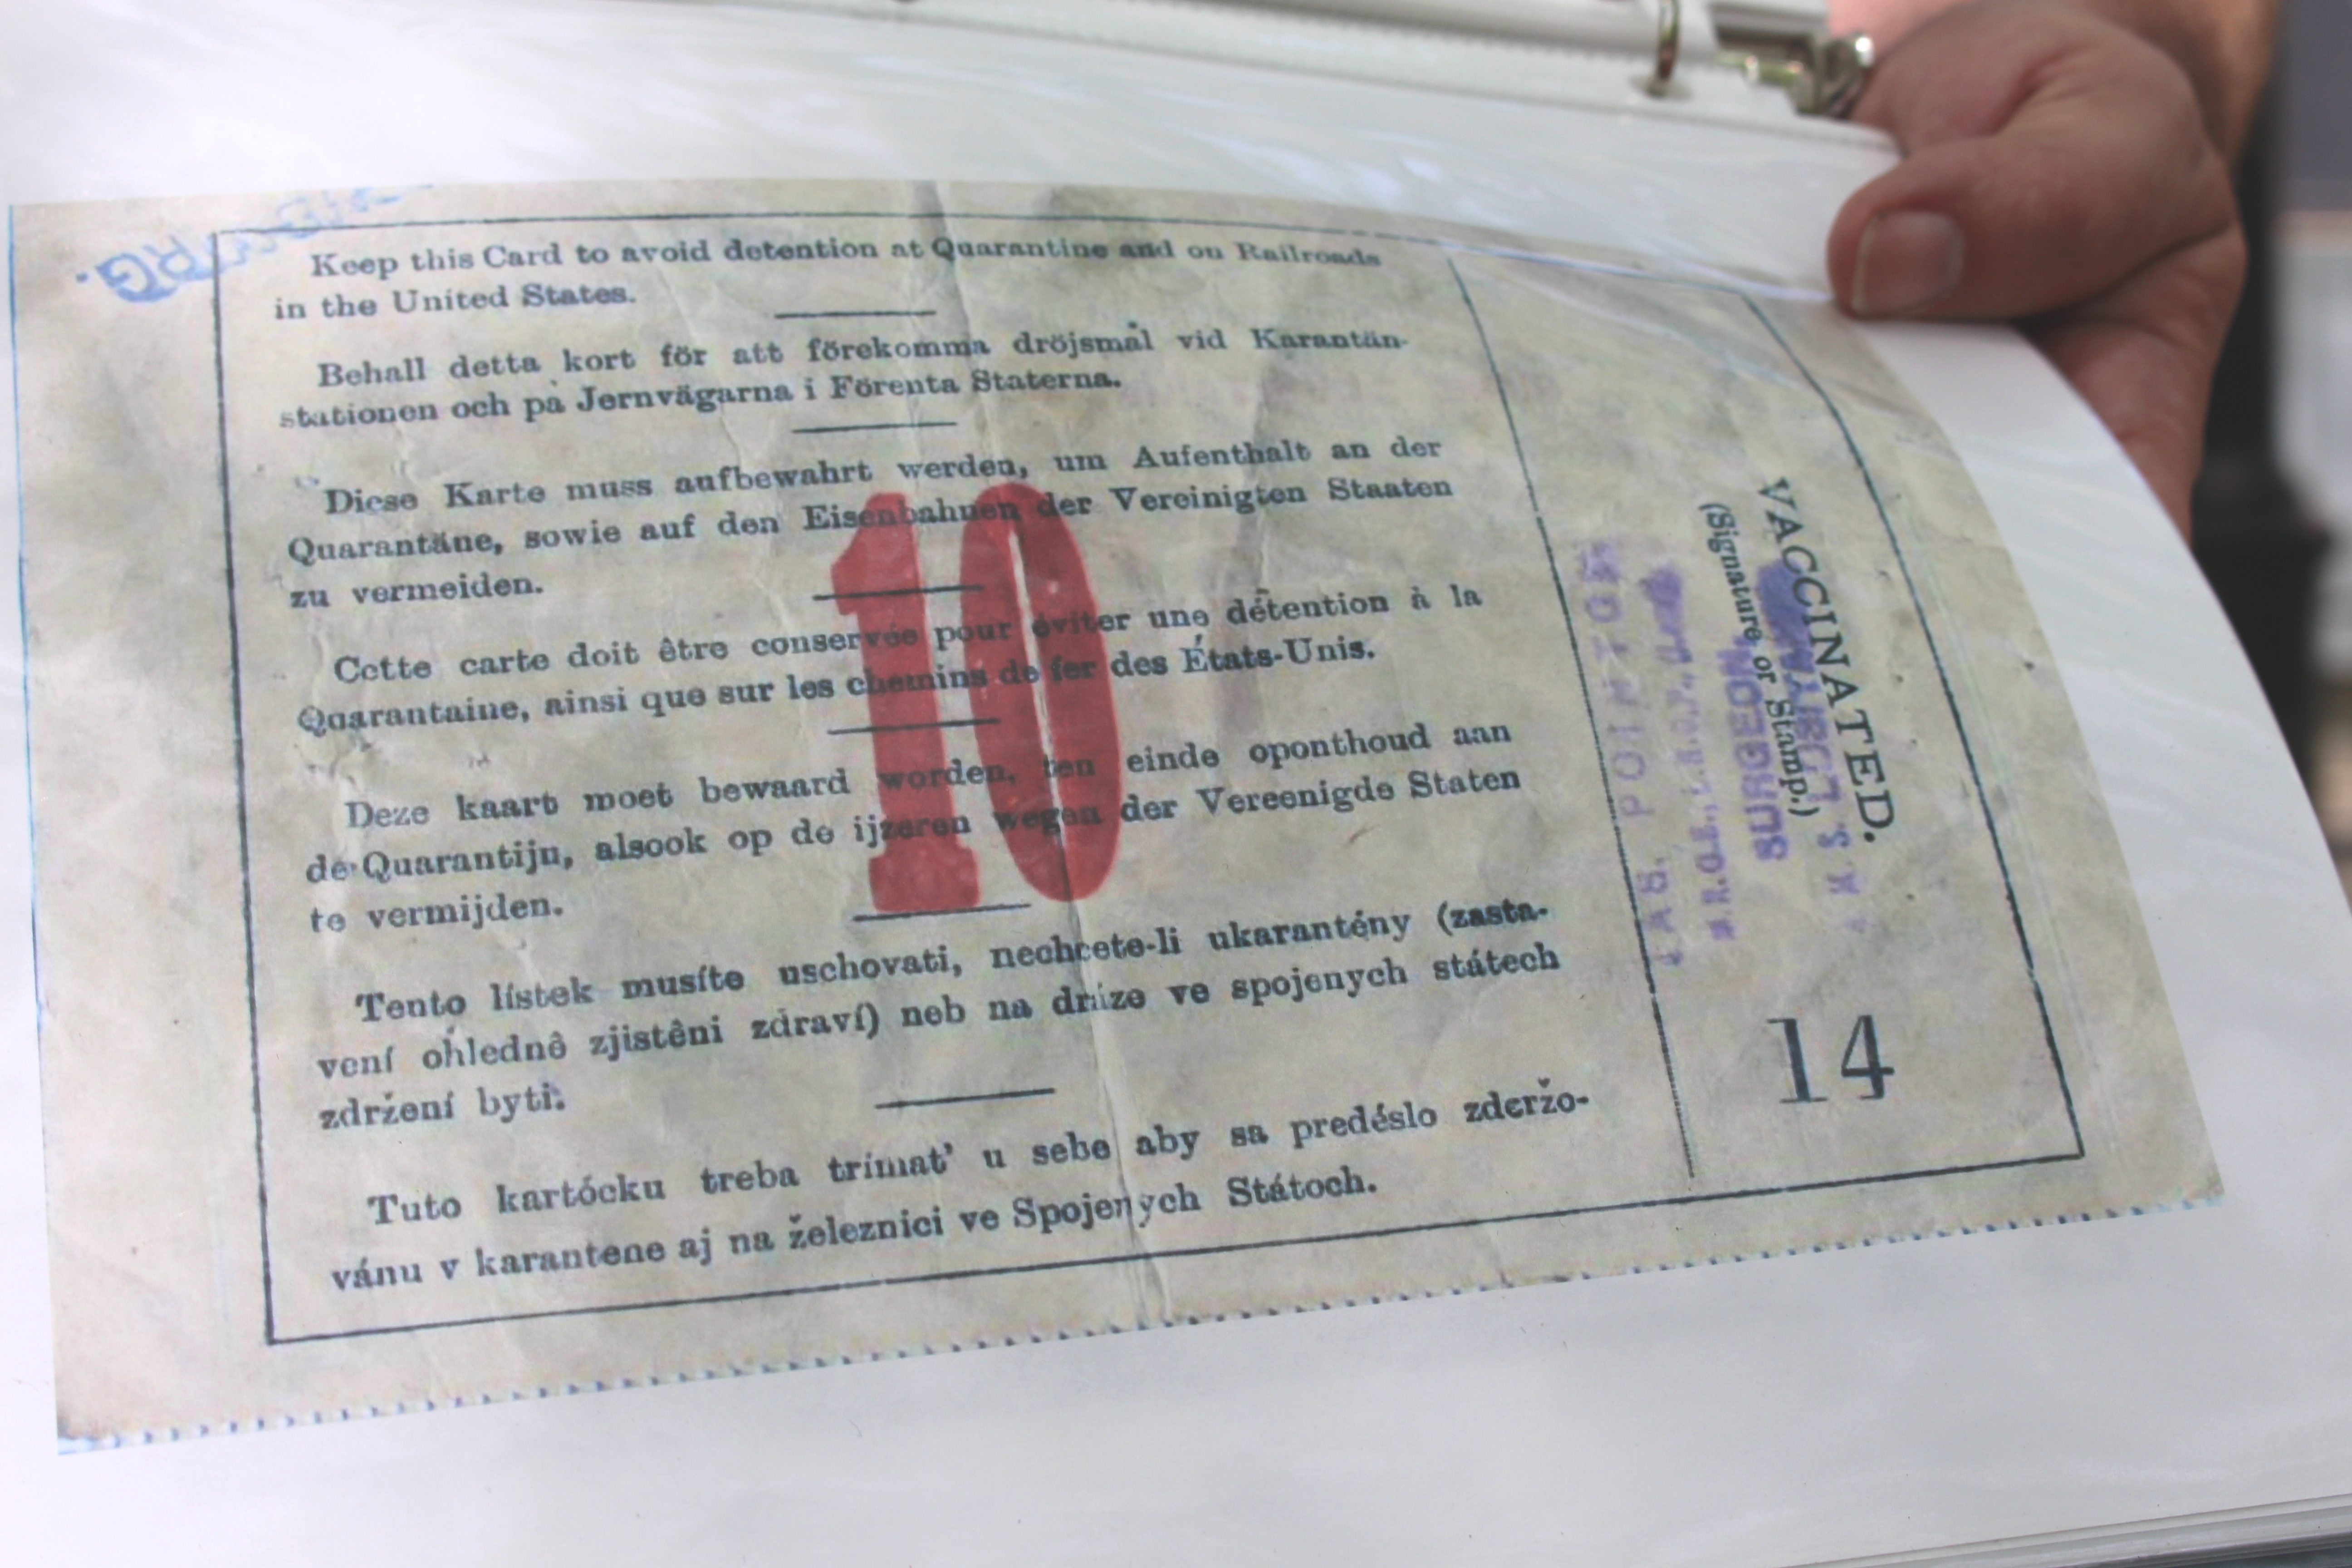 Keep this Card to avoid detention at Quarantine and on Railroads
in the United States.
Behall detta kort för att förekomma dröjsmål vid Karantän-
stationen och på Jernvägarna i Förenta Staterna.
Diese Karte muss aufbewahrt werden, um Aufenthalt an der
Quarantäne, sowie auf den Eisenbahnen der Vereinigten Staaten
zu vermeiden.
Cette carte doit être conservée pour éviter une détention à la
Quarantaine, ainsi que sur les chemins de fer des États-Unis.
Deze kaart moet bewaard worden, ten einde oponthoud aan
de Quarantijn, alsook op de ijzeren wegen der Vereenigde Staten
te vermijden.
Tento lístek musíte uschovati, nechcete-li ukarantény (zasta-
vení ohledně zjistêni zdraví) neb na dráze ve spojenych státech
zdržení byti.
Tuto kartócku treba trímat' u sebe aby sa predéslo zderžo-
vánu v karantene aj na železnici ve Spojenych Státoch.
10
VACCINATED.
(Signature or Stamp.)
SURGEON,
JAS. POINTON
14